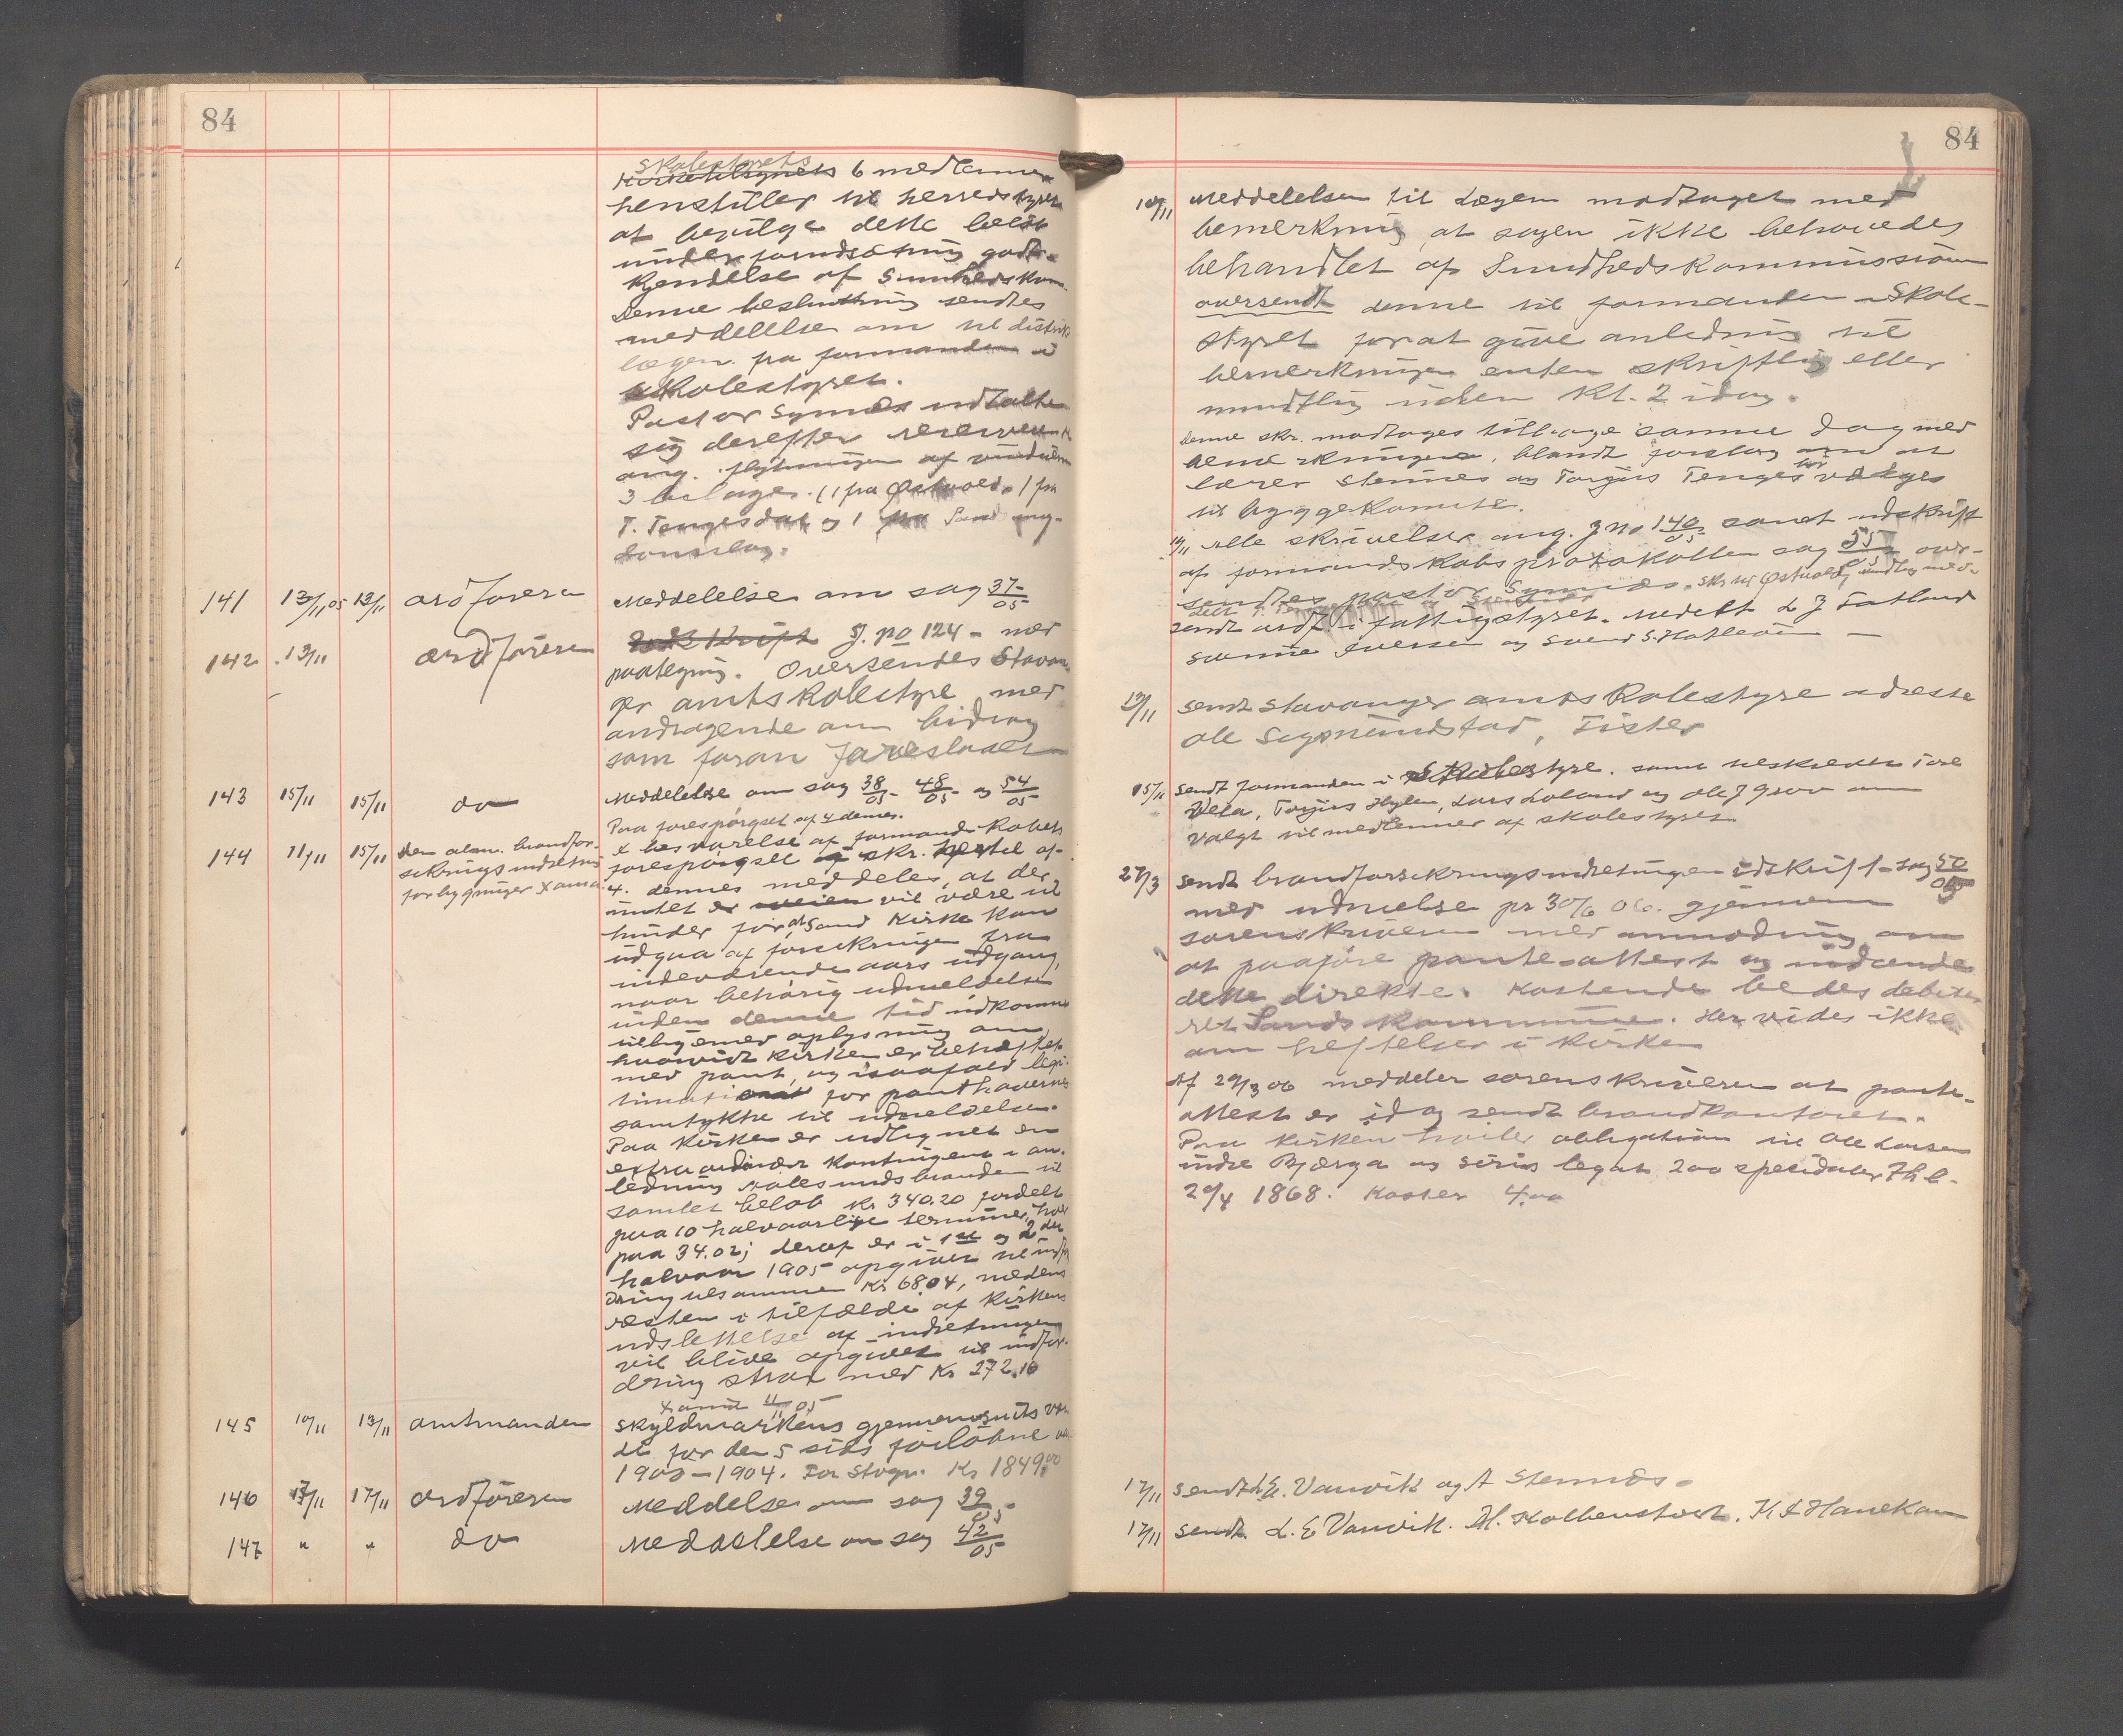 84
Skolestyrets
Kirketilsynets 6 medlemmer
henstiller til herredstyret
at bevilge dette beløb
under forudsætning godt-
kjendelse af Sundhedskom.
Denne beslutning sendtes
meddelelse om til distrikts
lægen fra formanden i
skolestyret.
Pastor Symnes udtalte
sig derefter
ang. flytningen af vinduerne
3 bilager. (1 fra Østvold, 1 fra
T. Tengesdal og 1 fra Sand ung-
domslag.
141 13/11 05 13/11 ordføreren Meddelelse om sag 37/05
142 13/11 ordføreren J. no 124 - med
paategning. Oversendes Stavan-
ger amtsskolestyre med
andragende om bidrag
som foran foreslaaet
143 15/11 15/11 do Meddelelse om sag 38/05 - 48/05 - og 54/05
Paa forespørgsel af 4 dennes.
144 11/11 15/11 Den alm. brandfor-
sikrings indretning
for bygninger x amin
I besvarelse af formandskabets
forespørgsel skr. hertil af
4. dennes meddeles, at der
intet er veien vil være til
hinder for at Sand Kirke kan
udgaa af forsikringen fra
indeværende aars udgang,
naar behørig udmeldelse
inden denne tid indkommer
tilligemed oplysning om
hvorvidt kirken er behæftet
med pant, og isaafald legi-
timation for panthavernes
samtykke til udmeldelsen.
Paa Kirken er udlignet en
extraordinær kontingent i an-
ledning Aalesundsbranden til
samlet beløb Kr 340.20 fordelt
paa 10 halvaarlige terminer, hver
paa 34.02; deraf er i 1ste og 2den
halvaar 1905 opgivet til indfor-
dring tilsammen Kr 68.04, medens
resten i tilfælde af Kirkens
udslettelse af indretningen
vil blive opgivet til indfor-
dring strax med Kr 272.16
x amin 11/11 05
145 10/11 13/11 amtmanden Skyldmarkens gjennemsnits vær-
di for den 5 aars forløbne
1900-1904. For Stvgr. Kr 1849.00
146 17/11 17/11 ordføreren Meddelse om sag 39/05
147 " " do Meddelelse om sag 42/05
84
10/11 Meddelelsen til Lægen modtaget med
bemerkning, at sagen ikke behøvedes
behandlet af Sundhedskommissionen
oversendt denne til formanden i Skole-
styret for at give anledning til
bemerkninger enten skriftlig eller
mundtlig inden Kl. 2 idag.
Denne skr. modtages tilbage samme dag med
bemerkninger, blandt forslag om at
lærer Stennes og Torgius Tenges vælges
til byggekomite.
Alle skrivelser ang. J no 140/05 samt udskrift
af formandskabs protokollen sag 55/05 over-
sendtes pastor Symnes. skr. til Østvold,
sendt ordf. i fattigstyret. Medelt L J Fatland
Iversen og Svend S.
13/11 sendt Stavanger amtsskolestyre adresse
Ole Sigmundstad, Fister
15/11 sendt formanden i Skolestyre. samt tilskreven Tore
Vela, Torgius Hylen, Lars Loland og Ole J Groov om
valgt til medlemmer af skolestyret
27/3 sendt brandforsikringsindretningen udskrift - sag 50/05
med udmelse pr 30/6 06. gjennem
sorenskriveren med anmodning om
at paaføre pante-attest og indsende
dette direkte. Kostende bedes debite-
ret Sands kommune. Her vides ikke
om heftelser i kirken
Af 29/3 06 meddeler sorenskriveren at pante-
attest er idag sendt brandkontoret.
Paa Kirken hviler obligation til Ole Larsen
indre Bjerga og Siris legat 200 specidaler Thl.
20/4 1868. Koster 4.00
17/11 sendt L. E. Vanvik og A Stennes.
17/11 sendt L. E Vanvik. M. Kolbenstvedt. K I Hanekam